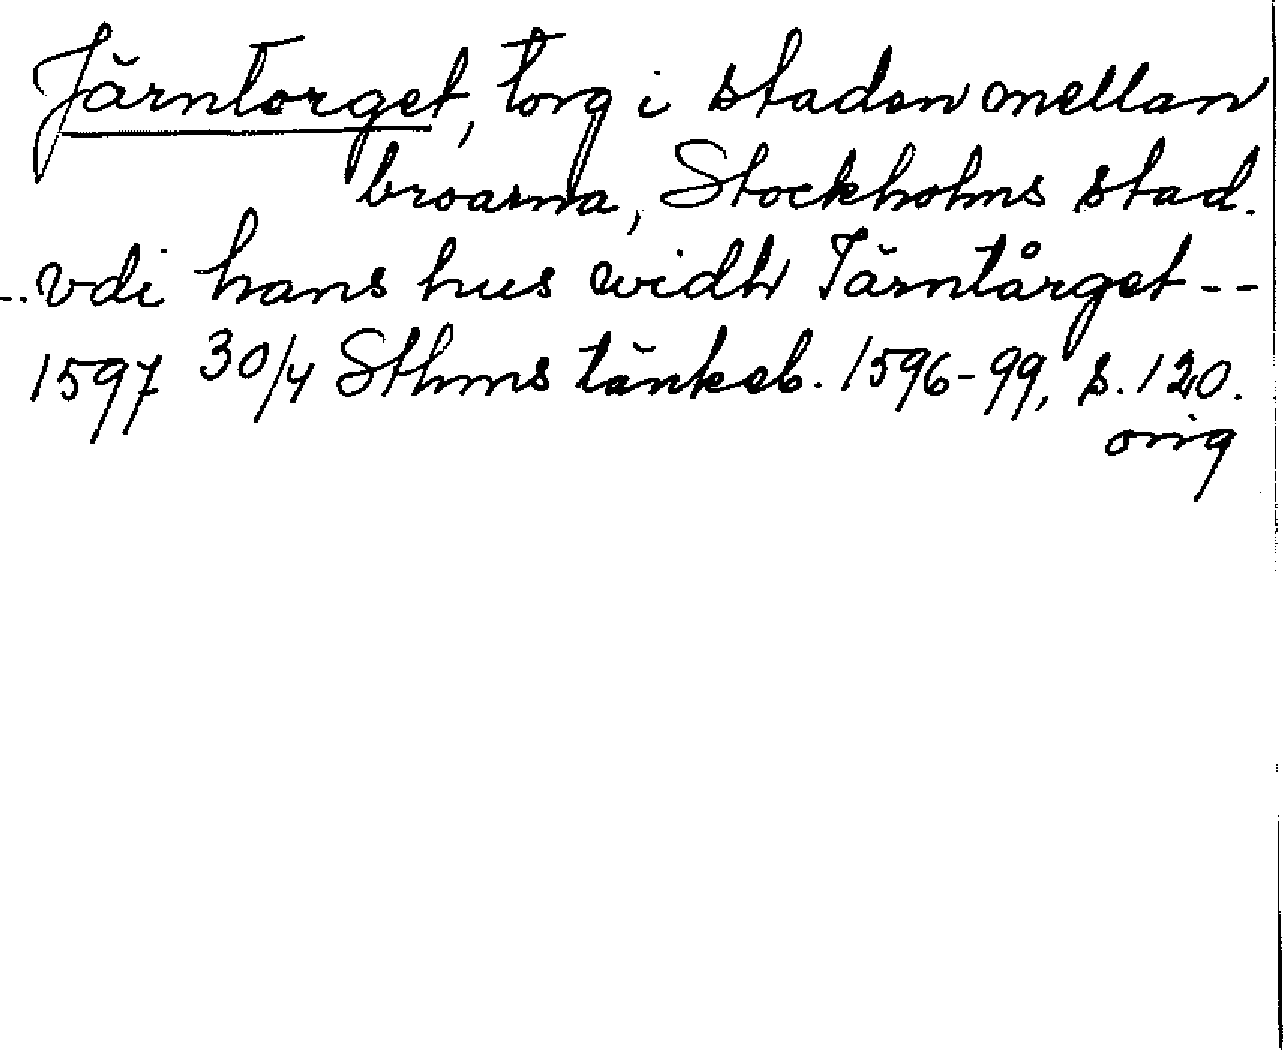 Järntorget, torg i staden mellan
broarna, Stockholms stad.
-- vdi hans hus widh Järntårget --
1597 30/4 Sthms tänkeb. 1596-99, s. 120.
orig